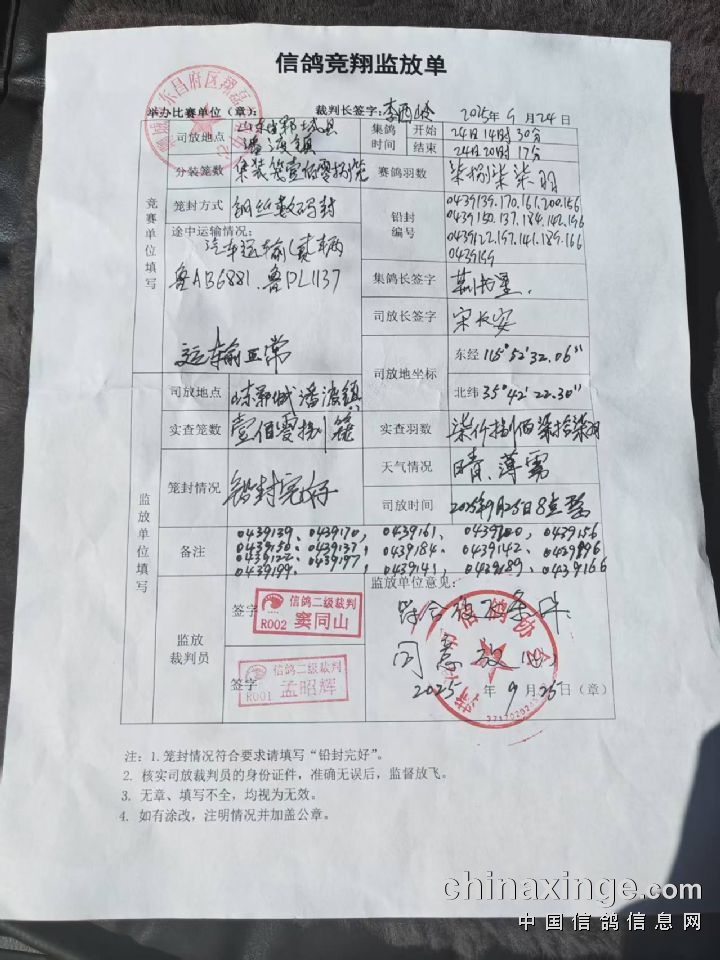 信鸽竞翔监放单
举办比赛单位（章）： 裁判长签字： 2025年9月24日
司放地点 山东省鄆城县潘渡镇 集鸽时间 开始 24日14时30分
结束 24日20时17分
分装笼数 集装笼壹佰零捌笼 赛鸽羽数 柒捌柒柒羽
竞赛单位填写
笼封方式 钢丝数码封 铅封编号 0439139.170.161.200.156
0439150.137.184.142.196
0439122.197.141.189.166
0439199
途中运输情况：
汽车运输(贰辆
鲁AB6881.鲁DL1137
运输正常
集鸽长签字
司放长签字 宋长安
司放地坐标 东经 115°52'32.06"
北纬 35°42'22.30"
监放单位填写
司放地点 潘渡镇
实查笼数 壹佰零捌笼 实查羽数 柒仟捌佰柒拾柒羽
笼封情况 铅封完好 天气情况 晴、薄雾
司放时间 2025年9月25日8点整
备注 0439139、0439170, 0439161、0439200、0439156
0439150、0439137, 0439184、0439142、0439196
0439122、0439197, 0439141, 0439189、0439166
0439199.
监放裁判员
签字 信鸽二级裁判
R002 窦同山
签字 信鸽二级裁判
R001 孟昭辉
监放单位意见：
符合放飞条件
同意放飞
2025年9月25日（章）
注：1. 笼封情况符合要求请填写“铅封完好”。
2. 核实司放裁判员的身份证件，准确无误后，监督放飞。
3. 无章、填写不全，均视为无效。
4. 如有涂改，注明情况并加盖公章。
chinaxinge.com
中国信鸽信息网